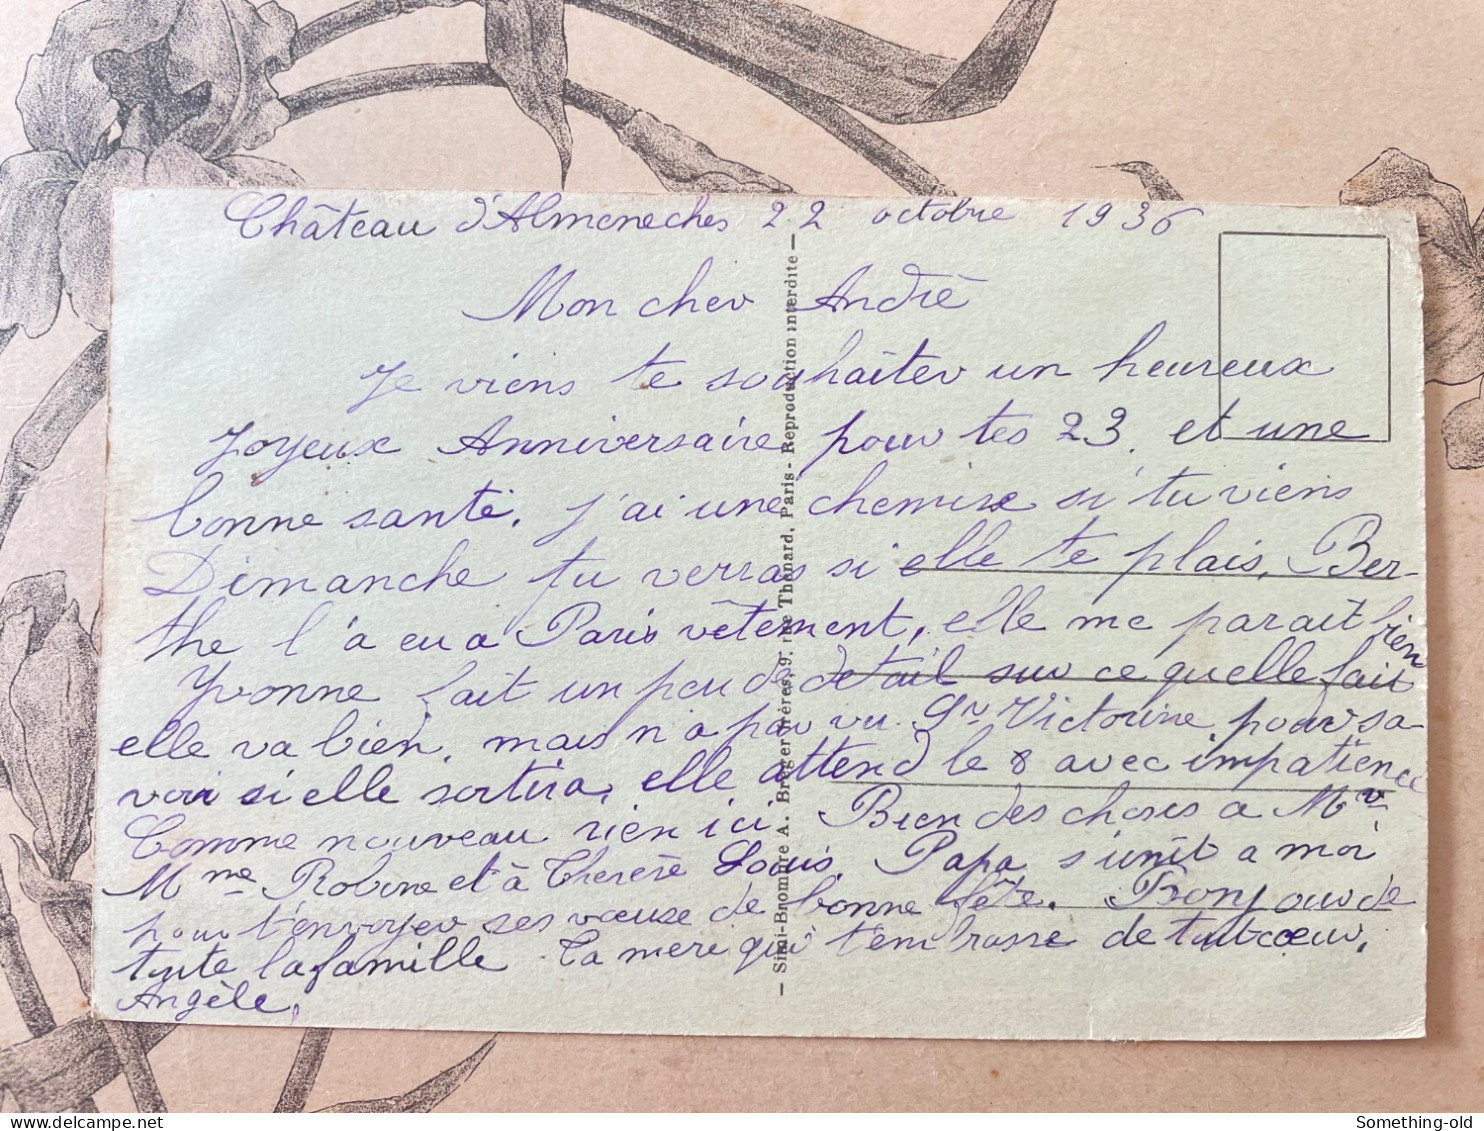 Château d'Almeneches 22 octobre 1936
Mon cher André
Je viens te souhaîter un heureux
Joyeux Anniversaire pour tes 23. et une
bonne santé. J'ai une chemise si tu viens
Dimanche tu verras si elle te plais. Ber-
the l'a eu a Paris vêtement, elle me parait bien
Yvonne fait un peu de detail sur ce quelle fait
elle va bien, mais n'a pas vu Victorine pour sa-
voir si elle sortira, elle attend le 8 avec impatience
Comme nouveau rien ici. Bien des choses a Mr
Mme Robine et à Therère Louis. Papa s'unit a moi
pour t'envoyer ses vœuse de bonne fête. Bonjour de
toute la famille. Ta mere qui t'embrasse de tout cœur.
Angèle.
- Simi-Bromure A. Breger frères, 9, rue Thénard, Paris - Reproduction interdite -
Something-old
delcampe.net